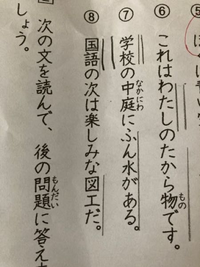 ⑥ これはわたしのたから物です。
⑦ 学校の中庭にふん水がある。
⑧ 国語の次は楽しみな図工だ。
次の文を読んで、後の問題に答え
しょう。